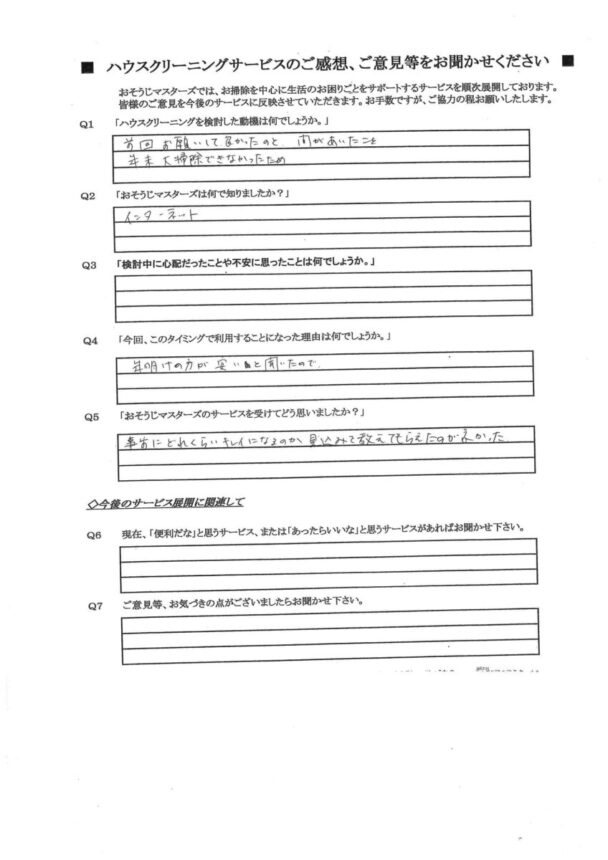 ■ ハウスクリーニングサービスのご感想、ご意見等をお聞かせください ■
おそうじマスターズでは、お掃除を中心に生活のお困りごとをサポートするサービスを順次展開しております。
皆様のご意見を今後のサービスに反映させていただきます。お手数ですが、ご協力の程お願いしたします。
Q1 「ハウスクリーニングを検討した動機は何でしょうか。」
前回お願いして良かったのと、間があいたことを
年末大掃除できなかったため
Q2 「おそうじマスターズは何で知りましたか？」
インターネット
Q3 「検討中に心配だったことや不安に思ったことは何でしょうか。」
Q4 「今回、このタイミングで利用することになった理由は何でしょうか。」
年明けの方が安いと聞いたので
Q5 「おそうじマスターズのサービスを受けてどう思いましたか？」
事前にどれくらいキレイになるのか見込みで教えてもらえたのが良かった
◇今後のサービス展開に関連して
Q6 現在、「便利だな」と思うサービス、または「あったらいいな」と思うサービスがあればお聞かせ下さい。
Q7 ご意見等、お気づきの点がございましたらお聞かせ下さい。